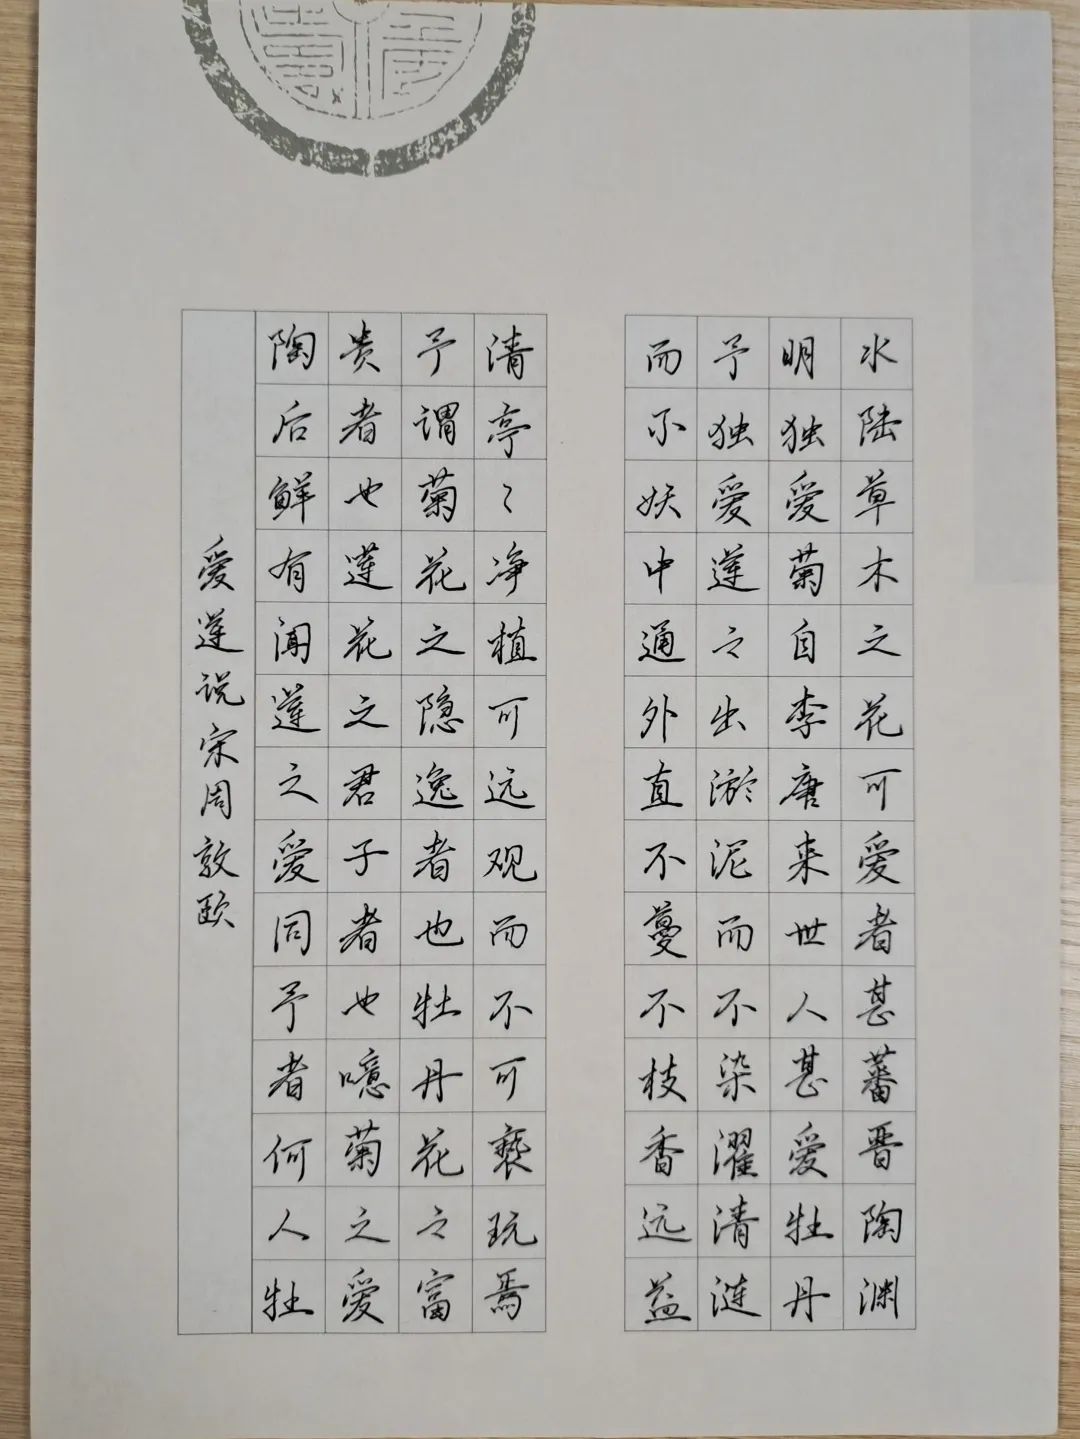 水陆草木之花可爱者甚蕃晋陶渊
明独爱菊自李唐来世人甚爱牡丹
予独爱莲之出淤泥而不染濯清涟
而不妖中通外直不蔓不枝香远益
清亭〻净植可远观而不可亵玩焉
予谓菊花之隐逸者也牡丹花之富
贵者也莲花之君子者也噫菊之爱
陶后鲜有闻莲之爱同予者何人牡
爱莲说宋周敦颐